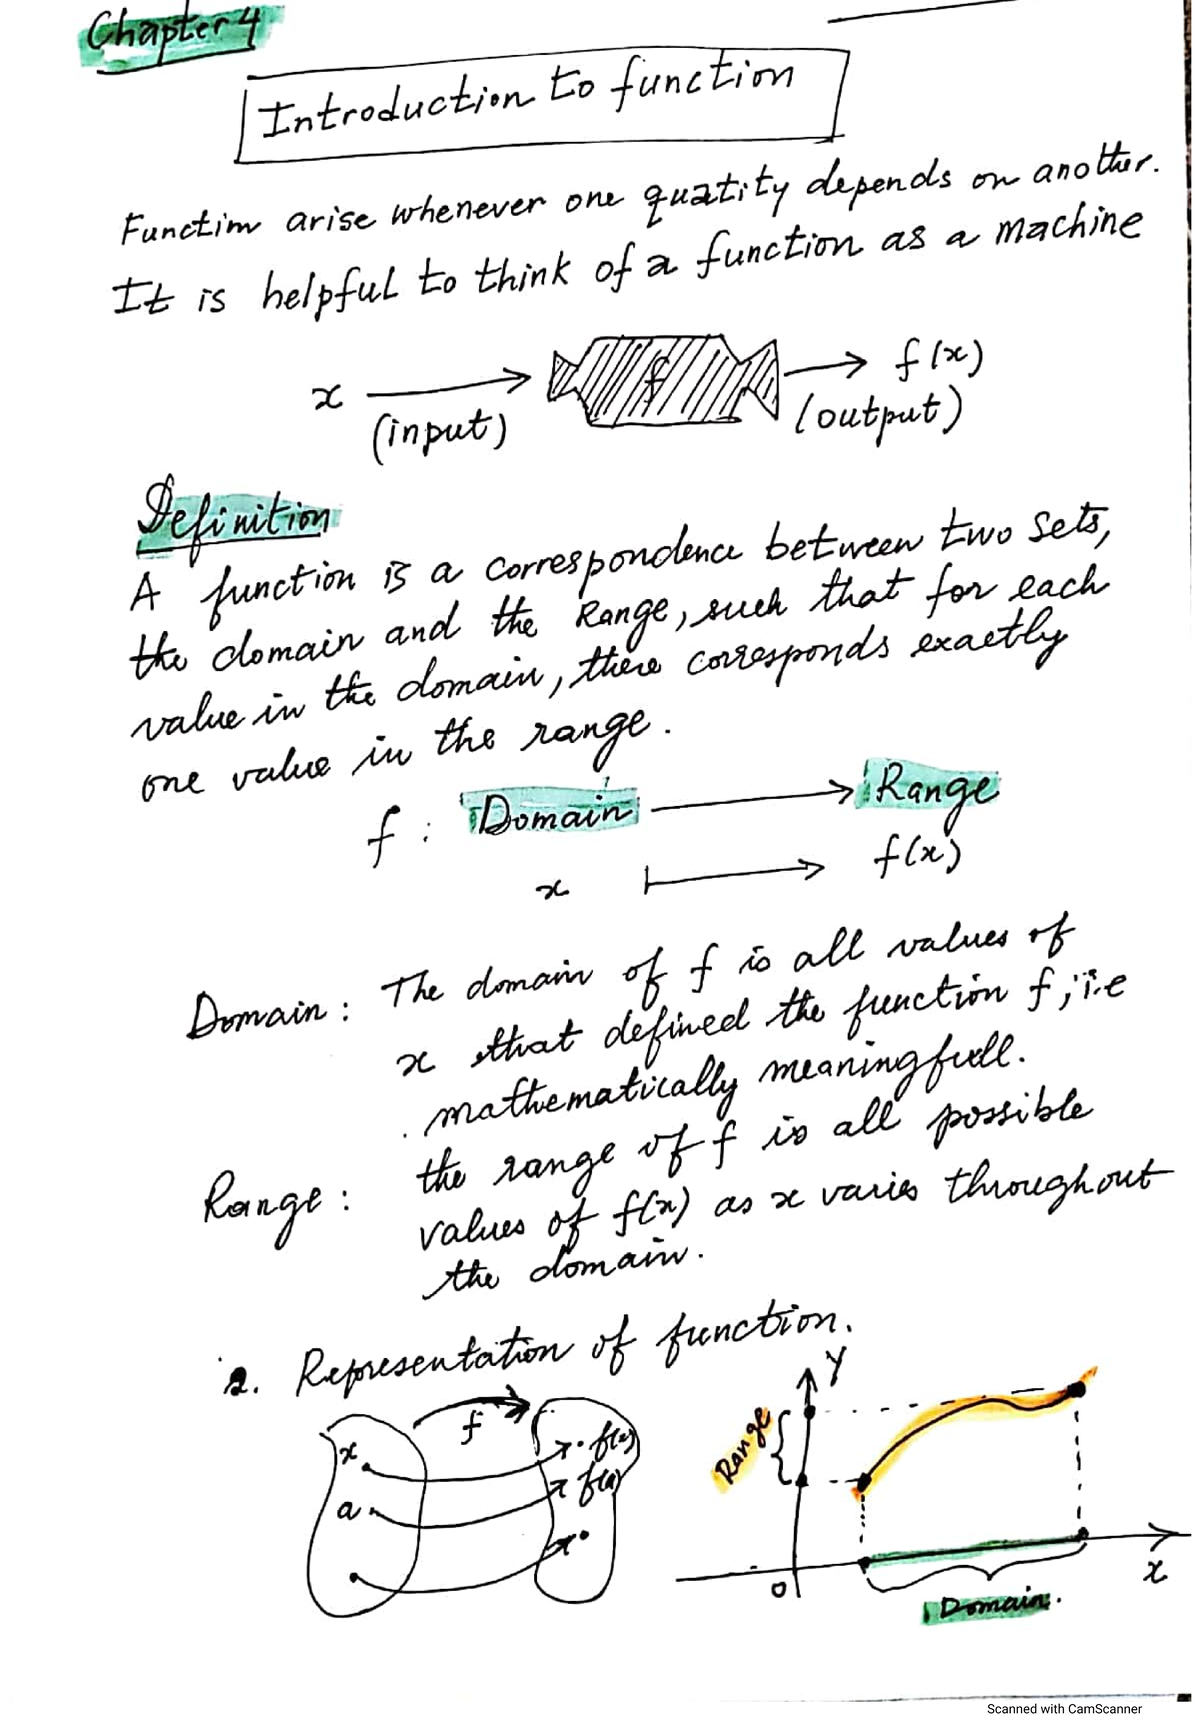 Chapter 4
Introduction to function
Functim arise whenever one quatity depends on another.
It is helpful to think of a function as a machine
x f f(x)
(input) (output)
Definition
A function is a correspondence between two sets,
the domain and the Range, such that for each
value in the domain, there corresponds exactly
one value in the range.
f : Domain Range
x f(x)
Domain: The domain of f is all values of
x that defined the function f, i.e
mathematically meaningfull.
Range: the range of f is all possible
values of f(x) as x varies throughout
the domain.
2. Representation of function.
f
x f(x)
a f(a)
Y
Range
0 x
Domain.
Scanned with CamScanner